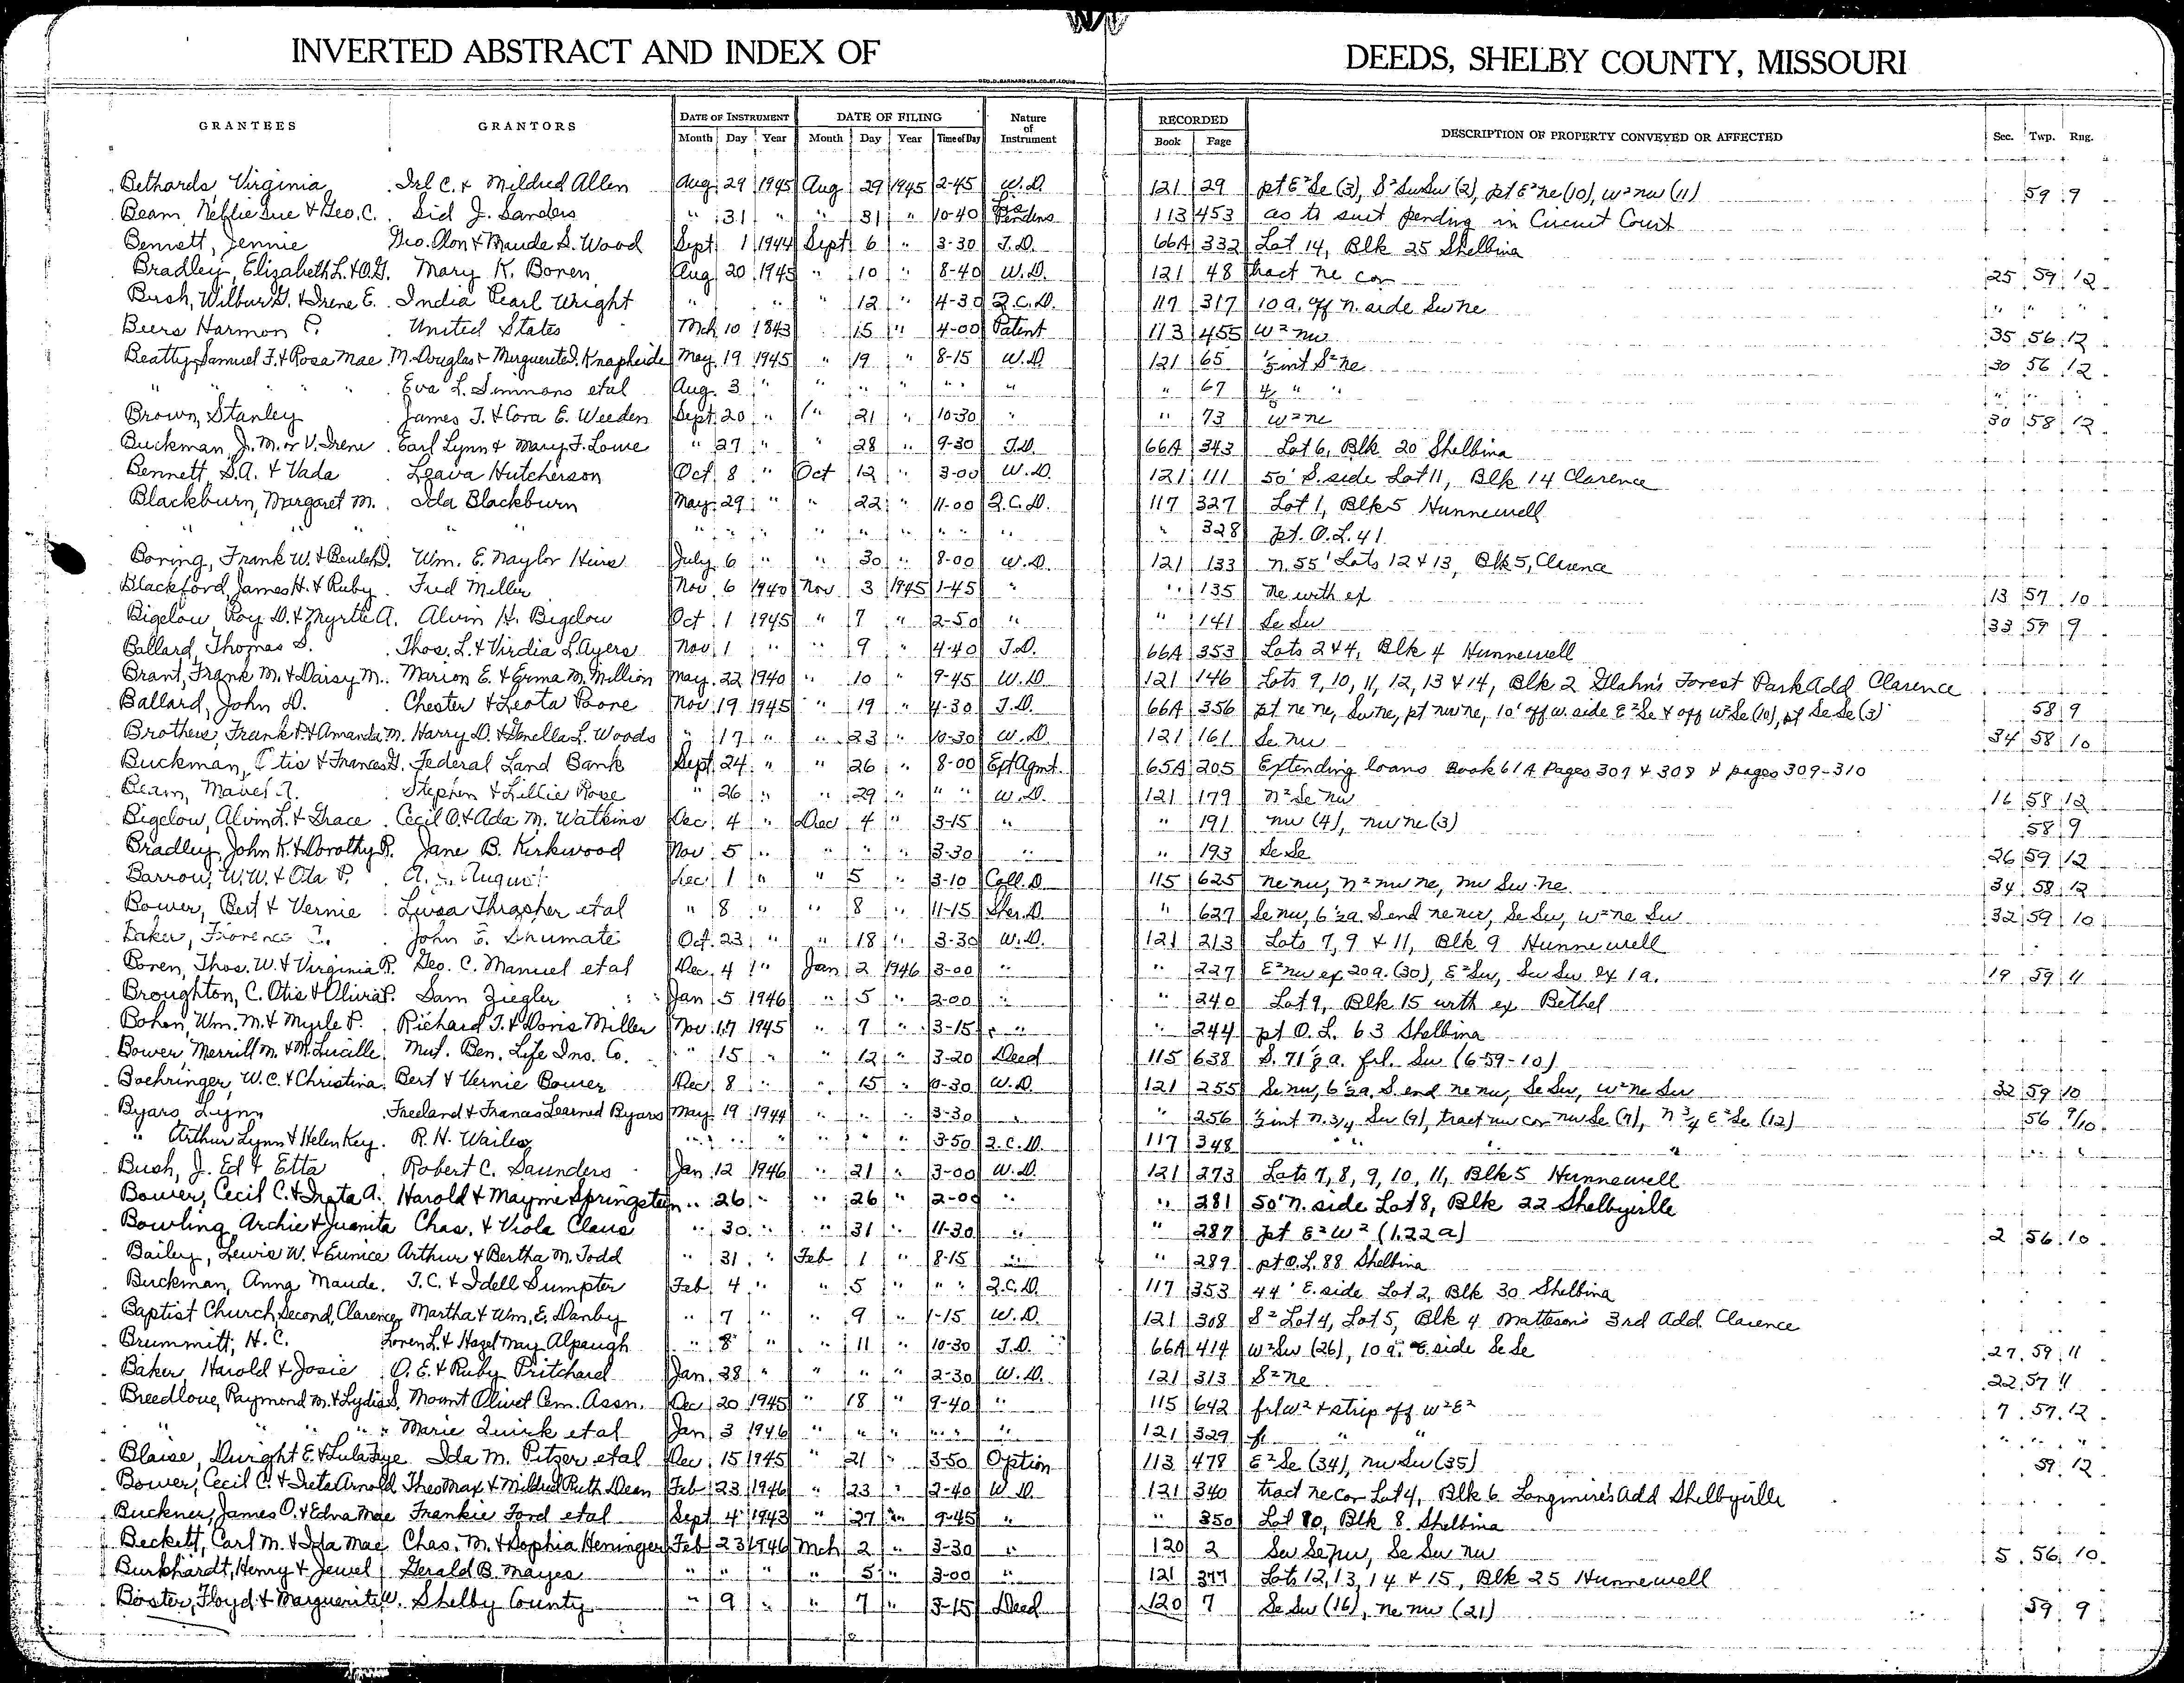 INVERTED ABSTRACT AND INDEX OF DEEDS, SHELBY COUNTY, MISSOURI
GRANTEES GRANTORS DATE OF INSTRUMENT DATE OF FILING Nature of Instrument RECORDED DESCRIPTION OF PROPERTY CONVEYED OR AFFECTED Sec. Twp. Rng.
Month Day Year Month Day Year Time of Day Book Page
Bethards, Virginia Irl C. & Mildred Allen Aug 29 1945 Aug 29 1945 2-45 W.D. 121 29 pt E²Se (3), S²SwSw (2), pt E²ne (10), W²nw (11) 59 9
Beam, Nellie Sue & Geo. C. Sid J. Sanders " 31 " " 31 " 10-40 Lis Pendens 113 453 as to suit pending in Circuit Court
Bennett, Jennie Geo. Olon & Maude S. Wood Sept 1 1944 Sept 6 " 3-30 T.D. 66A 332 Lot 14, Blk 25 Shelbina
Bradley, Elizabeth L. & O.G. Mary K. Boren Aug 20 1945 " 10 " 8-40 W.D. 121 48 tract ne cor 25 59 12
Bush, Wilbur G. & Irene E. India Pearl Wright " " " 12 " 4-30 Q.C.D. 117 317 10a. off n. side Sw ne " " "
Beers Harmon P. United States Mch 10 1843 15 " 4-00 Patent 113 455 W² nw 35 56 12
Beatty, Samuel F. & Rosa Mae M. Douglas & Marguerite D. Knapheide May 19 1945 " 19 " 8-15 W.D. 121 65 1/5 int S² ne 30 56 12
" " " " Eva L. Simmons etal Aug. 3 " " " " " " " " 67 4/5 " " " " "
Brown, Stanley James T. & Cora E. Weeden Sept 20 " " 21 " 10-30 " " 73 W² ne 30 58 12
Buckman, J.M. or V. Irene Earl Lynn & Mary F. Lowe " 27 " " 28 " 9-30 T.D. 66A 343 Lot 6, Blk 20 Shelbina
Bennett, S.A. & Vada Leava Hutcherson Oct 8 " Oct 12 " 3-00 W.D. 121 111 50' S. side Lot 11, Blk 14 Clarence
Blackburn, Margaret M. Ida Blackburn May 29 " " 22 " 11-00 Q.C.D. 117 327 Lot 1, Blk 5 Hunnewell
" " " " " " " " " " " " " " 328 pt. O.L. 41
Boring, Frank W. & Beulah D. Wm. E. Naylor Heirs July 6 " " 30 " 8-00 W.D. 121 133 n. 55' Lots 12 & 13, Blk 5, Clarence
Blackford, James H. & Ruby Fred Miller Nov. 6 1940 Nov 3 1945 1-45 " " 135 ne with ex 13 57 10
Bigelow, Roy D. & Myrtle A. Alvin H. Bigelow Oct 1 1945 " 7 " 2-50 " " 141 Se Sw 33 59 9
Ballard, Thomas S. Thos. L. & Virdia L. Ayers Nov 1 " " 9 " 4-40 T.D. 66A 353 Lots 2 & 4, Blk 4 Hunnewell
Brant, Frank M. & Daisy M. Marion E. & Erma M. Million May 22 1940 " 10 " 9-45 W.D. 121 146 Lots 9, 10, 11, 12, 13 & 14, Blk 2 Glahn's Forest Park Add Clarence
Ballard, John D. Chester & Leota Poore Nov 19 1945 " 19 " 4-30 T.D. 66A 356 pt ne ne, Sw ne, pt nw ne, 10' off w. side E²Se & off W²Se (10), pt Se Se (3) 58 9
Brothers, Frank P. & Amanda M. Harry D. & Genella L. Woods " 17 " " 23 " 10-30 W.D. 121 161 Se nw 34 58 10
Buckman, Otis & Frances G. Federal Land Bank Sept 24 " " 26 " 8-00 Ext Agmt. 65A 205 Extending loans Book 61A Pages 307 & 308 & pages 309-310
Beam, Mabel A. Stephen & Lillie Rose " 26 " " 29 " " " W.D. 121 179 n² Se nw 16 58 12
Bigelow, Alvin L. & Grace Cecil O. & Ada M. Watkins Dec 4 " Dec 4 " 3-15 " " 191 nw (4), nw ne (3) 58 9
Bradley, John K. & Dorothy R. Jane B. Kirkwood Nov 5 " " " " 3-30 " " 193 Se Se 26 59 12
Barrow, W.W. & Ota P. A. August Dec 1 " " 5 " 3-10 Coll. D. 115 625 ne nw, n² nw ne, nw Sw ne 34 58 12
Bower, Bert & Vernie Livsa Thrasher etal " 8 " " 8 " 11-15 Sher. D. " 627 Se nw, 6⅔a. S. end ne nw, Se Sw, W² ne Sw 32 59 10
Baker, Florence John E. Shumate Oct. 23 " " 18 " 3-30 W.D. 121 213 Lots 7, 9 & 11, Blk 9 Hunnewell
Boren, Thos. W. & Virginia R. Geo. C. Manuel etal Dec. 4 " Jan 2 1946 3-00 " " 227 E² nw ex 20a. (30), E² Sw, Sw Sw ex 1a. 19 59 11
Broughton, C. Otis & Olivia P. Sam Ziegler Jan 5 1946 " 5 " 2-00 " " 240 Lot 9, Blk 15 with ex Bethel
Bohon, Wm. M. & Myrle P. Richard T. & Doris Miller Nov. 17 1945 " 7 " 3-15 " " 244 pt O.L. 63 Shelbina
Bower Merrill M. & M. Lucille Mut. Ben. Life Ins. Co. " 15 " 12 " 3-20 Deed 115 638 S. 71⅔ a. frl. Sw (6-59-10)
Boehringer, W.C. & Christina Bert & Vernie Bower Dec 8 " " 15 " 10-30 W.D. 121 255 Se nw, 6⅔a. S. end ne nw, Se Sw, W² ne Sw 32 59 10
Byars, Lynn Freeland & Frances Learned Byars May 19 1944 " " " 3-30 " " 256 ⅓ int n. 3/4 Sw (9), tract nw cor nw Se (9), n 3/4 E² Se (12) 56 9/10
" Arthur Lynn & Helen Key R.H. Wailes " " " " " " 3-50 Q.C.D. 117 348 " " " " "
Bush, J. Ed & Etta Robert C. Saunders Jan 12 1946 " 21 " 3-00 W.D. 121 273 Lots 7, 8, 9, 10, 11, Blk 5 Hunnewell
Bower, Cecil C. & Ireta A. Harold & Mayme Springsteen " 26 " " 26 " 2-00 " " 281 50' n. side Lot 8, Blk 22 Shelbyville
Bowling, Archie & Juanita Chas. & Viola Claus " 30 " " 31 " 11-30 " " 287 pt E² W² (1.22a) 2 56 10
Bailey, Lewis W. & Eunice Arthur & Bertha M. Todd " 31 " Feb 1 " 8-15 " " 289 pt O.L. 88 Shelbina
Buckman, Anna Maude T.C. & Idell Sumpter Feb 4 " " 5 " " " Q.C.D. 117 353 44' E. side Lot 2, Blk 30 Shelbina
Baptist Church, Second, Clarence Martha & Wm. E. Danby " 7 " " 9 " 1-15 W.D. 121 308 S² Lot 4, Lot 5, Blk 4 Matteson's 3rd Add. Clarence
Brummitt, H.C. Loren L. & Hazel May Alpaugh " 8 " " 11 " 10-30 T.D. 66A 414 W² Sw (26), 10 a. E. side Se Se 27 59 11
Baker, Harold & Josie O.E. & Ruby Pritchard Jan. 28 " " " " 2-30 W.D. 121 313 S² ne 22 57 11
Breedlove, Raymond M. & Lydia S. Mount Olivet Cem. Assn. Dec 20 1945 " 18 " 9-40 " 115 642 frl W² & strip off W² E² 7 57 12
" " " " Marie Quirk etal Jan 3 1946 " " " " " " 121 329 " " " " "
Blaise, Dwight E. & Lula Faye Ida M. Pitzer etal Dec 15 1945 " 21 " 3-50 Option 113 478 E² Se (34), nw Sw (35) 59 12
Bower, Cecil C. & Ireta Arnold Theo Max & Mildred Ruth Dean Feb 23 1946 " 23 " 2-40 W.D. 121 340 tract ne cor Lot 4, Blk 6 Longmire's Add Shelbyville
Buckner, James O. & Edna Mae Frankie Ford etal Sept 4 1943 " 27 " 9-45 " " 350 Lot 10, Blk 8 Shelbina
Beckett, Carl M. & Ida Mae Chas. M. & Sophia Heninger Feb 23 1946 Mch 2 " 3-30 " 120 2 Sw Se nw, Se Sw nw 5 56 10
Burkhardt, Henry & Jewel Gerald B. Mayes " " " " 5 " 3-00 " 121 377 Lots 12, 13, 14 & 15, Blk 25 Hunnewell
Boster, Floyd & Marguerite W. Shelby County " 9 " " 7 " 3-15 Deed 120 7 Se Sw (16), ne nw (21) 59 9